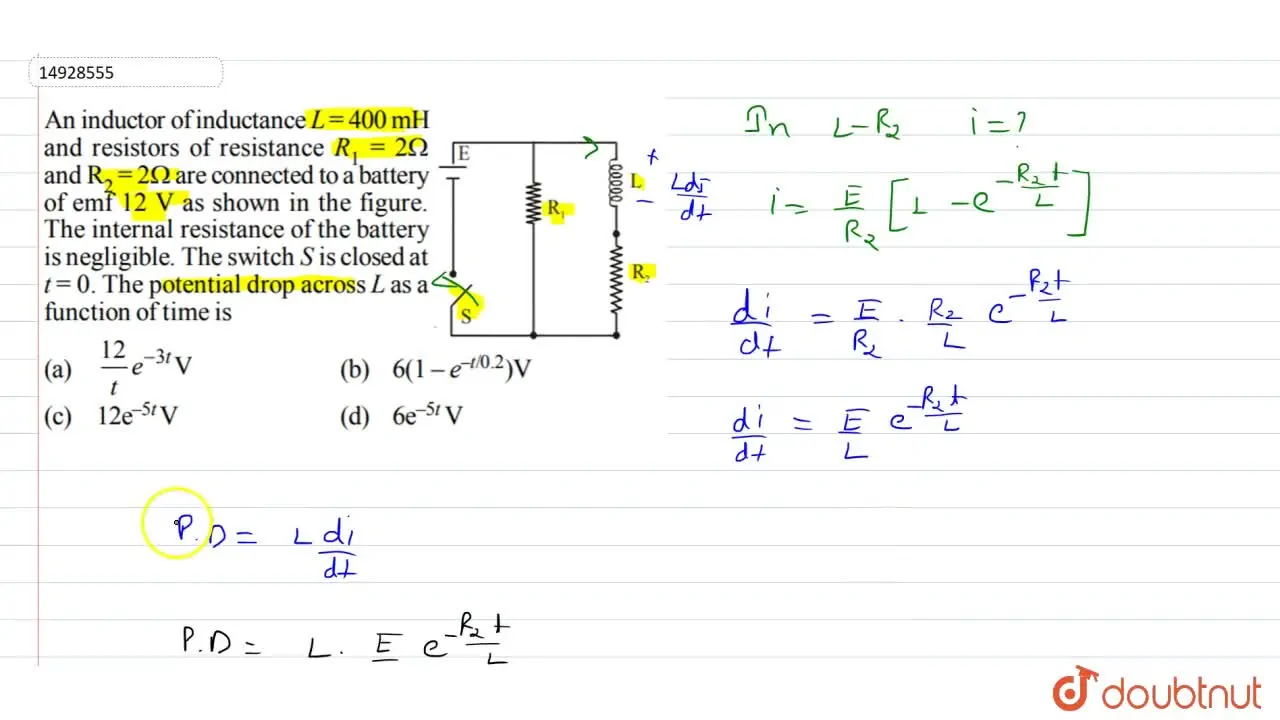 14928555
An inductor of inductance L = 400 mH
and resistors of resistance R₁ = 2Ω
and R₂ = 2Ω are connected to a battery
of emf 12 V as shown in the figure.
The internal resistance of the battery
is negligible. The switch S is closed at
t = 0. The potential drop across L as a
function of time is
(a) 12/t e^(–3t) V (b) 6(1 – e^(–t/0.2))V
(c) 12e^(–5t) V (d) 6e^(–5t) V
E
R₁
L
R₂
S
+
L di/dt
−
In L–R₂ i = ?
i = E/R₂ [1 – e^(–R₂t/L)]
di/dt = E/R₂ · R₂/L e^(–R₂t/L)
di/dt = E/L e^(–R₂t/L)
P.D = L di/dt
P.D = L · E e^(–R₂t/L)
doubtnut